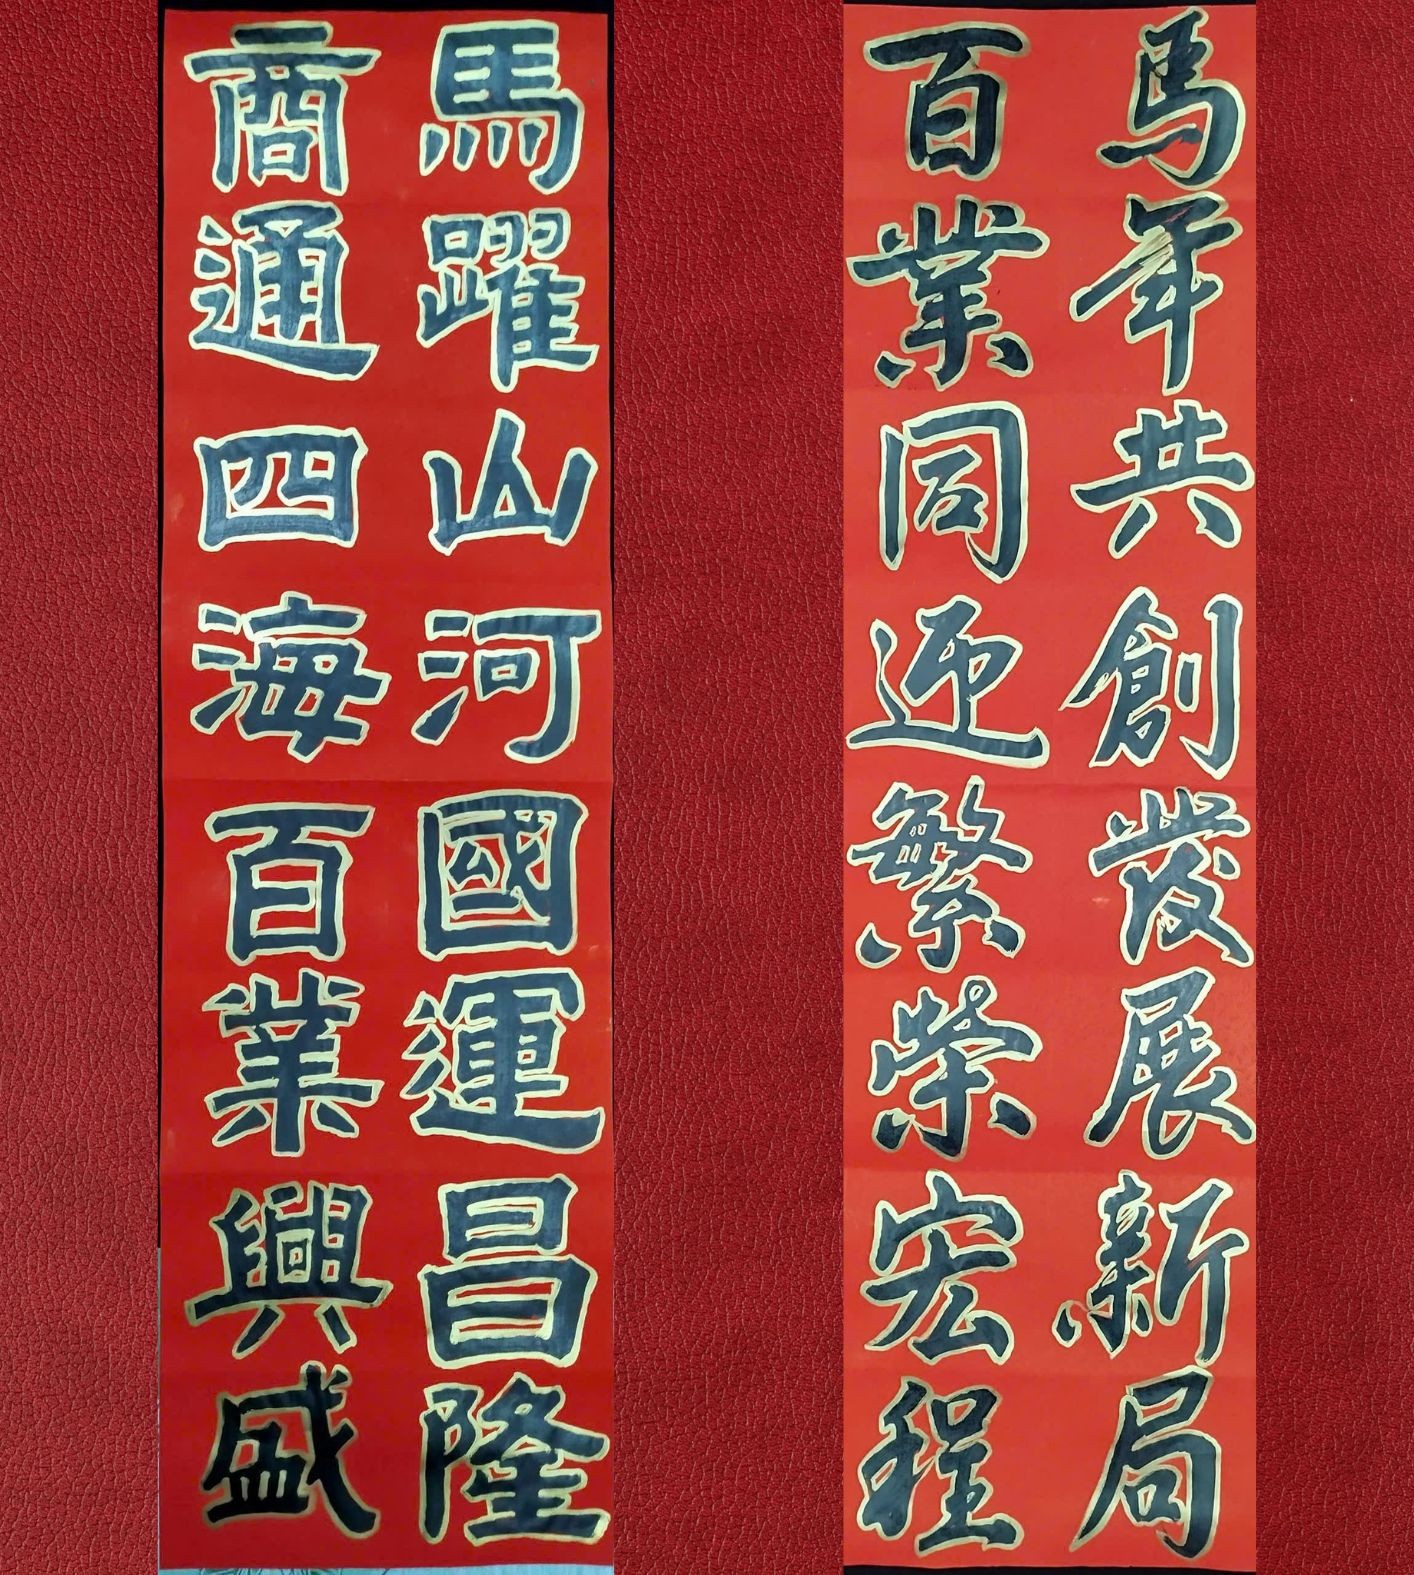 馬年共創發展新局
百業同迎繁榮宏程
馬躍山河國運昌隆
商通四海百業興盛